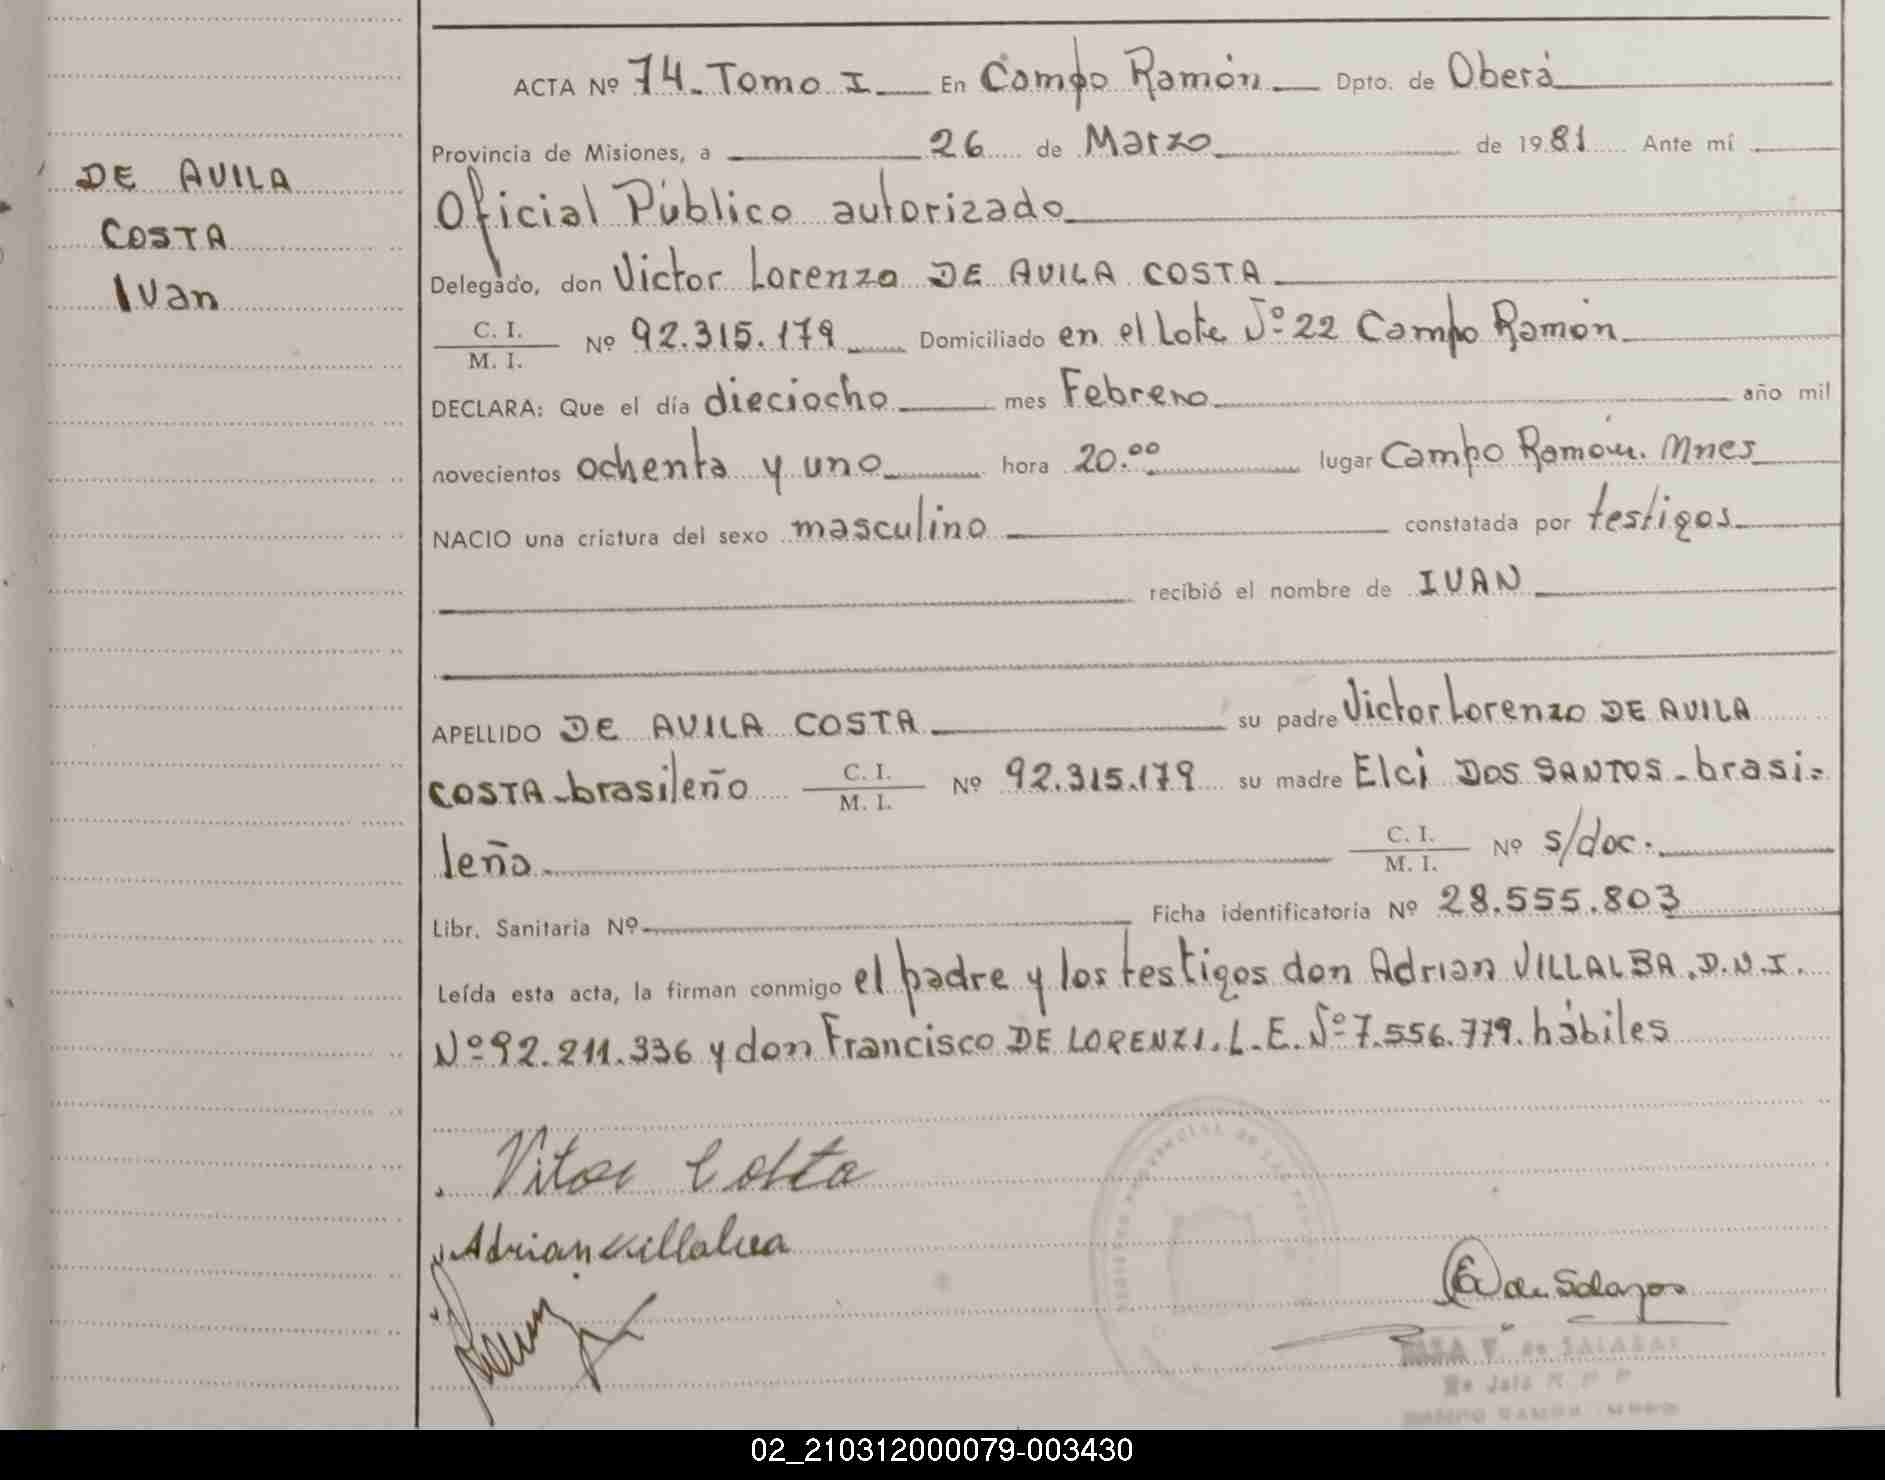 DE AVILA
COSTA
Ivan
ACTA Nº 74. Tomo I. En Campo Ramón Dpto. de Oberá
Provincia de Misiones, a 26 de Marzo de 1981 Ante mí
Oficial Público autorizado
Delegado, don Victor Lorenzo DE AVILA COSTA
C. I.
M. I. Nº 92.315.179 Domiciliado en el Lote Nº 22 Campo Ramón
DECLARA: Que el día dieciocho mes Febrero año mil
novecientos ochenta y uno hora 20.00 lugar Campo Ramón. Mnes
NACIO una criatura del sexo masculino constatada por testigos
recibió el nombre de IVAN
APELLIDO DE AVILA COSTA su padre Victor Lorenzo DE AVILA
COSTA - brasileño C. I. M. I. Nº 92.315.179 su madre Elci DOS SANTOS - brasi-
leña C. I. M. I. Nº s/doc.
Libr. Sanitaria Nº Ficha identificatoria Nº 28.555.803
Leída esta acta, la firman conmigo el padre y los testigos don Adrian VILLALBA. D.N.I.
Nº 92.211.336 y don Francisco DE LORENZI. L.E. Nº 7.556.779. hábiles
Vitor Costa
Adrian Villalva
de Salazar
de SALAZAR
CAMPO RAMON
02_210312000079-003430